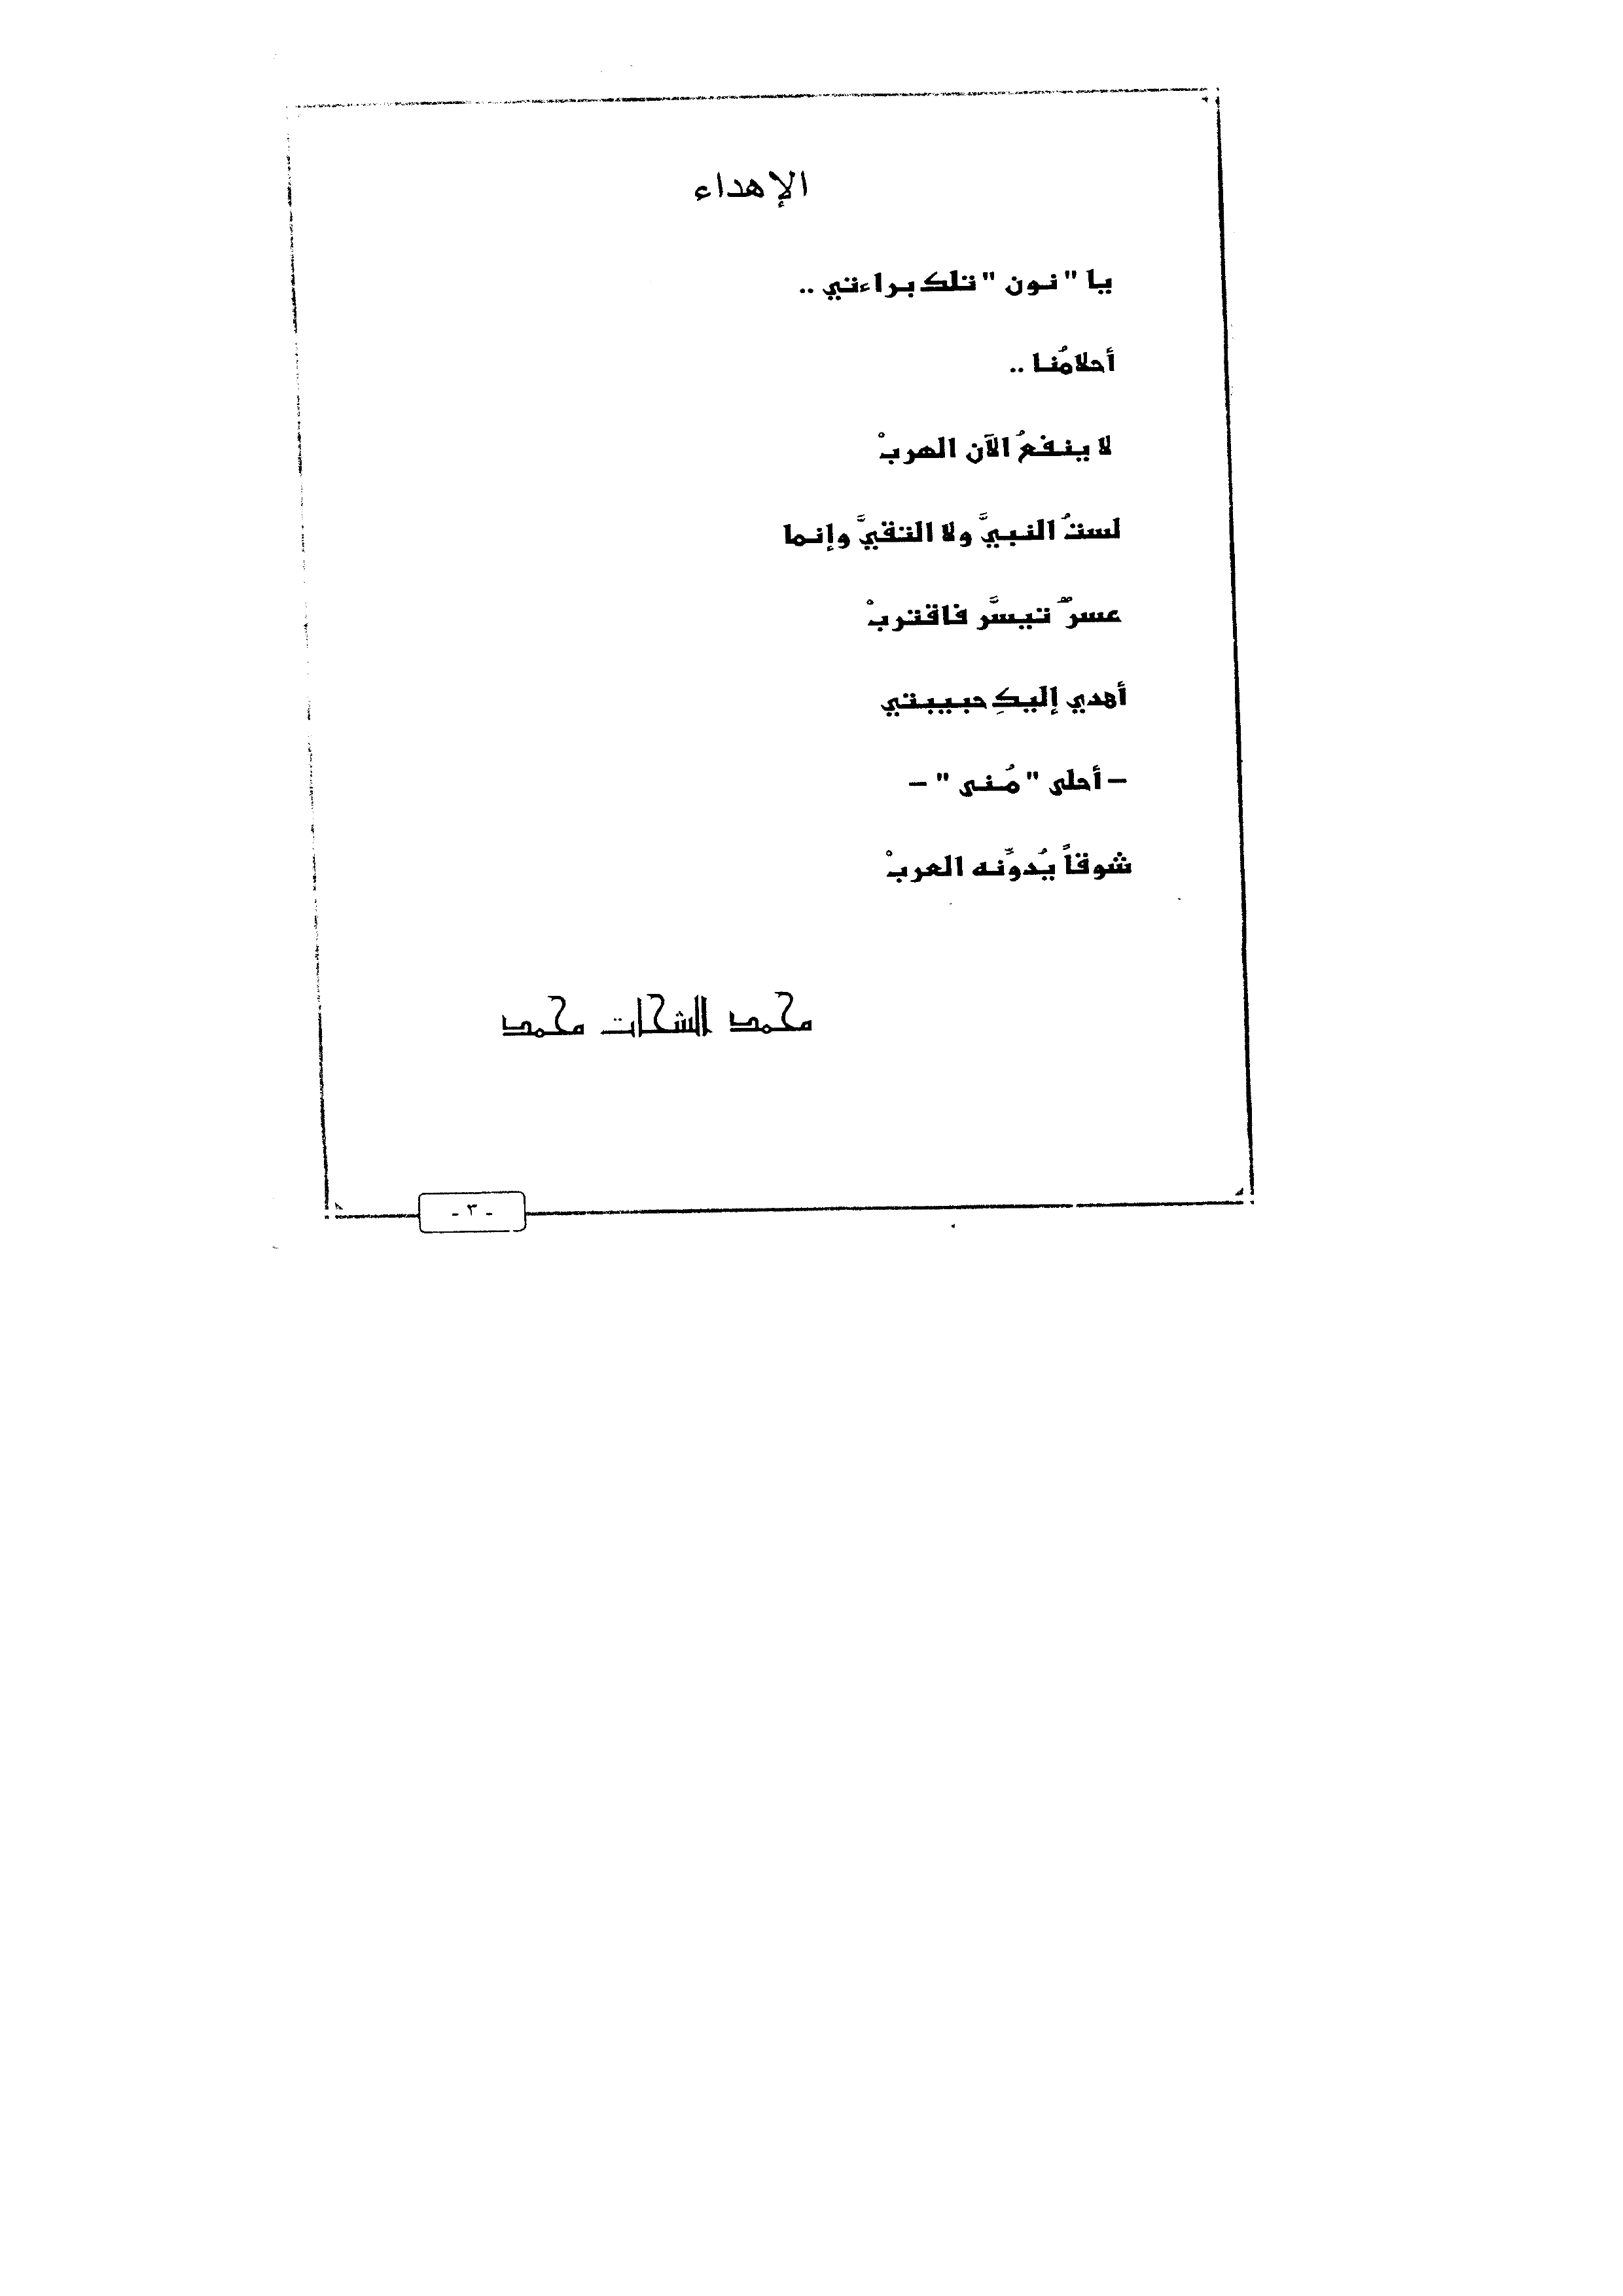 الإهداء
يا "نون" تلك براءتي ..
أحلامُنا ..
لا ينفعُ الآن الهربْ
لستُ النبيَّ ولا التقيَّ وإنما
عسرٌ تيسَّر فاقتربْ
أهدي إليكِ حبيبتي
– أحلى "مُنى" –
شوقاً يُدوِّنه العربْ
محمد الشحات محمد
- ٣ -